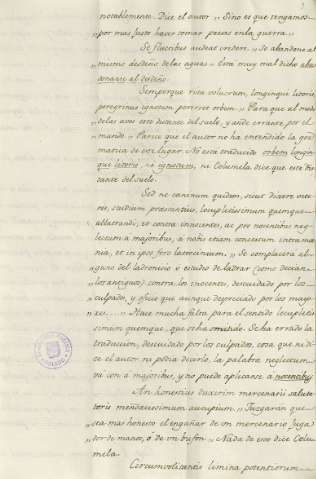 notablemente. Dice el autor „ Sino es que tengamos
„ por mas justo hacer tomar presas en la guerra. „
Se fluctibus audeat credere. „ Se abandone al
„ mismo desdeño de las aguas „ Esta muy mal dicho aban
donarse al desdeño.
Semperque ritu volucrum, longinqui litoris,
peregrinus ignotum pererret orbem. „ Para que al modo
„ de las aves este distante del suelo, y ande errante por el
„ mundo. „ Parece que el autor no ha entendido la gra-
matica de este lugar. No esta traducido orbem longin
qui litoris, ni ignotum, ni Columela dice que este dis
tante del suelo.
Sed ne caninum quidem, sicut dixere vete-
res, studium præstantius, locupletissimum quemque
allatrandi, et contra innocentes, ac pro nocentibus neg
lectum a majoribus, a nobis etiam concessum intra mœ
nia, et in ipso foro latrocinium. „ Se complacera al-
„ guno del ladronicio o estudio de ladrar (como decian
„ los antiguos) contra los inocentes, descuidado por los
„ culpados, y oficio que aunque despreciado por los mayo
„ res. „ Hace mucha falta para el sentido locupletis
simum quemque, que se ha omitido. Se ha errado la
traduccion, descuidado por los culpados, cosa que ni di-
ce el autor ni podia decirlo, la palabra neglectum
va con a majoribus, y no puede aplicarse a nocentibus
An honestius duxerim mercenarii saluta
toris mendacissimum aucupium. „ Juzgaran que
„ sea mas honesto el engañar de un mercenario juga
„ dor de manos, ó de un bufon. „ Nada de esto dice Colu
mela.
Circumvolitantis limina potentiorum